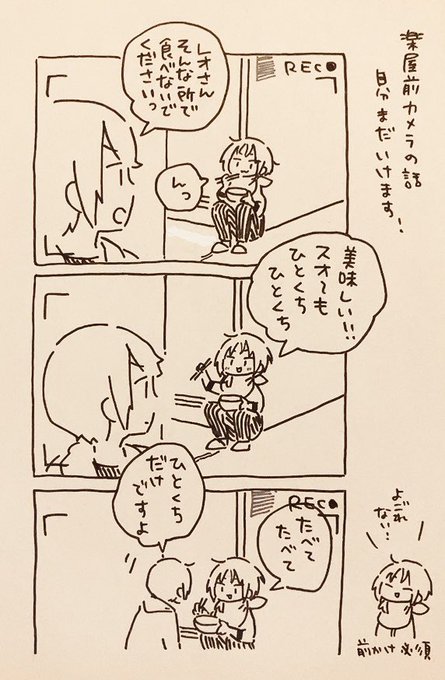 楽屋前カメラの話
自分まだいけます!
REC
レオさん
そんな所で
食べないで
くださいっ
んっ
美味しい!!
スオ~も
ひとくち
ひとくち
REC
たべて
たべて
ひとくち
だけ
ですよ
よごれ
ない!
前かけ必須